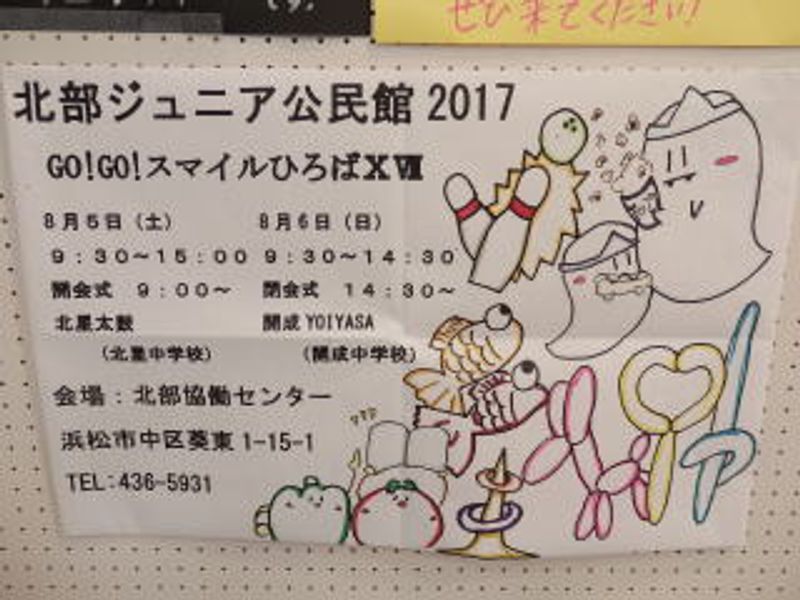 ぜひ来てください!
北部ジュニア公民館 2017
GO!GO!スマイルひろばⅩⅦ
8月5日（土） 8月6日（日）
9：30～15：00 9：30～14：30
開会式 9：00～ 閉会式 14：30～
北星太鼓 開成YOIYASA
（北星中学校） （開成中学校）
会場：北部協働センター
浜松市中区葵東1-15-1
TEL:436-5931